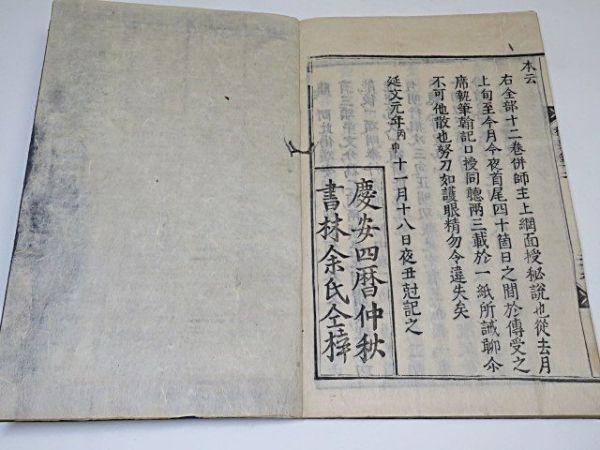 本云
右全部十二巻併師主上綱面授秘説也従去月
上旬至今月今夜首尾四十箇日之間於傳受之
席執筆翰記口授同聽兩三載於一紙所誡聊尒
不可他散也努力如護眼精勿令違失矣
延文元年丙申十一月十八日夜丑尅記之
慶安四暦仲秋
書林余氏仝梓